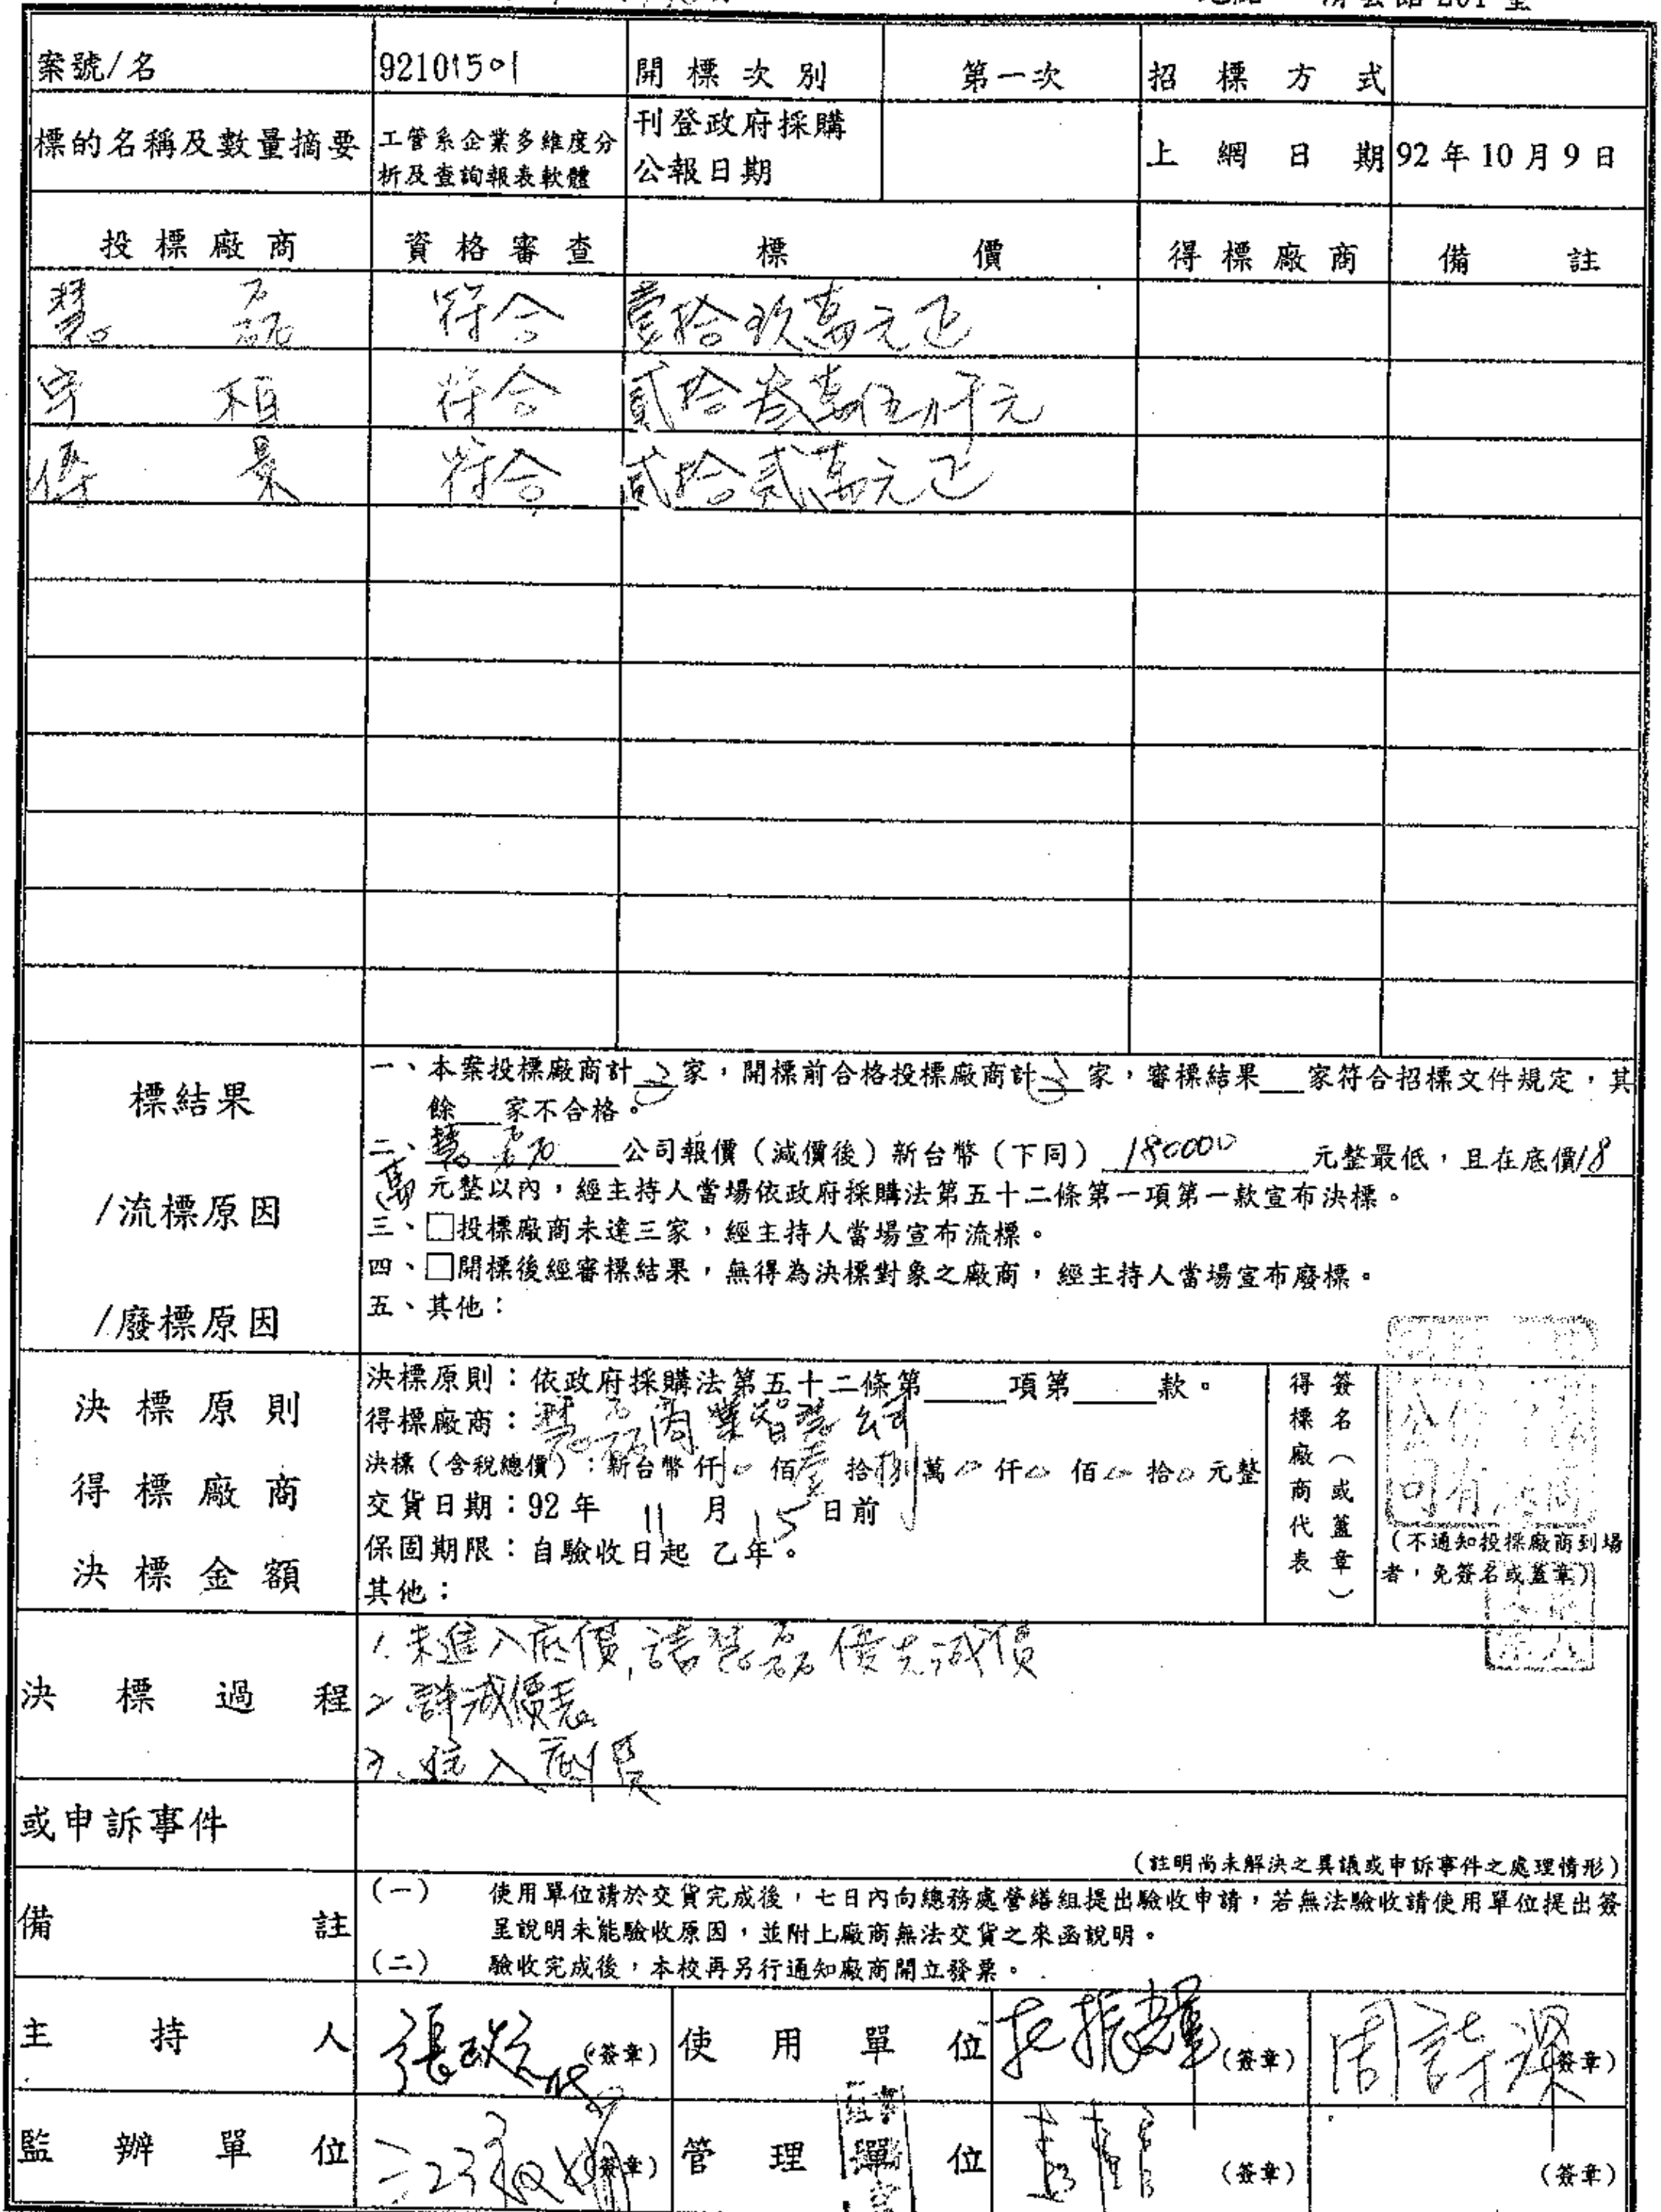 案號/名 92101501 開標次別 第一次 招標方式
標的名稱及數量摘要 工管系企業多維度分析及查詢報表軟體 刊登政府採購公報日期 上網日期 92年10月9日
投標廠商 資格審查 標價 得標廠商 備註
慧磊 符合 壹拾玖萬元正
宇柏 符合 貳拾叁萬伍仟元
符合 貳拾貳萬元正
標結果
/流標原因
/廢標原因
一、本案投標廠商計3家,開標前合格投標廠商計3家,審標結果___家符合招標文件規定,其
餘___家不合格。
二、慧磊公司報價(減價後)新台幣(下同)180000元整最低,且在底價18
萬元整以內,經主持人當場依政府採購法第五十二條第一項第一款宣布決標。
三、□投標廠商未達三家,經主持人當場宣布流標。
四、□開標後經審標結果,無得為決標對象之廠商,經主持人當場宣布廢標。
五、其他:
決標原則
得標廠商
決標金額
決標原則:依政府採購法第五十二條第____項第____款。
得標廠商:慧磊商業智慧
決標(含稅總價):新台幣 仟0佰壹拾捌萬0仟0佰0拾0元整
交貨日期:92年11月15日前
保固期限:自驗收日起 乙年。
其他:
得標廠商代表
簽名(或蓋章)
(不通知投標廠商到場
者,免簽名或蓋章)
決標過程
1.未進入底價,請慧磊優先減價
2.詳減價表
3.進入底價
或申訴事件
(註明尚未解決之異議或申訴事件之處理情形)
備註
(一) 使用單位請於交貨完成後,七日內向總務處營繕組提出驗收申請,若無法驗收請使用單位提出簽
呈說明未能驗收原因,並附上廠商無法交貨之來函說明。
(二) 驗收完成後,本校再另行通知廠商開立發票。
主持人 (簽章) 使用單位 振輝 (簽章) 周詩 (簽章)
監辦單位 (簽章) 管理單位 (簽章) (簽章)